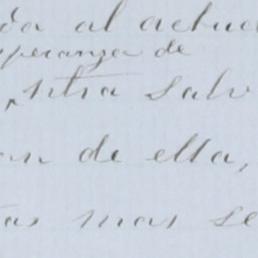 da al actu
speranza de
ntra salv
an de ella,
tas mas se